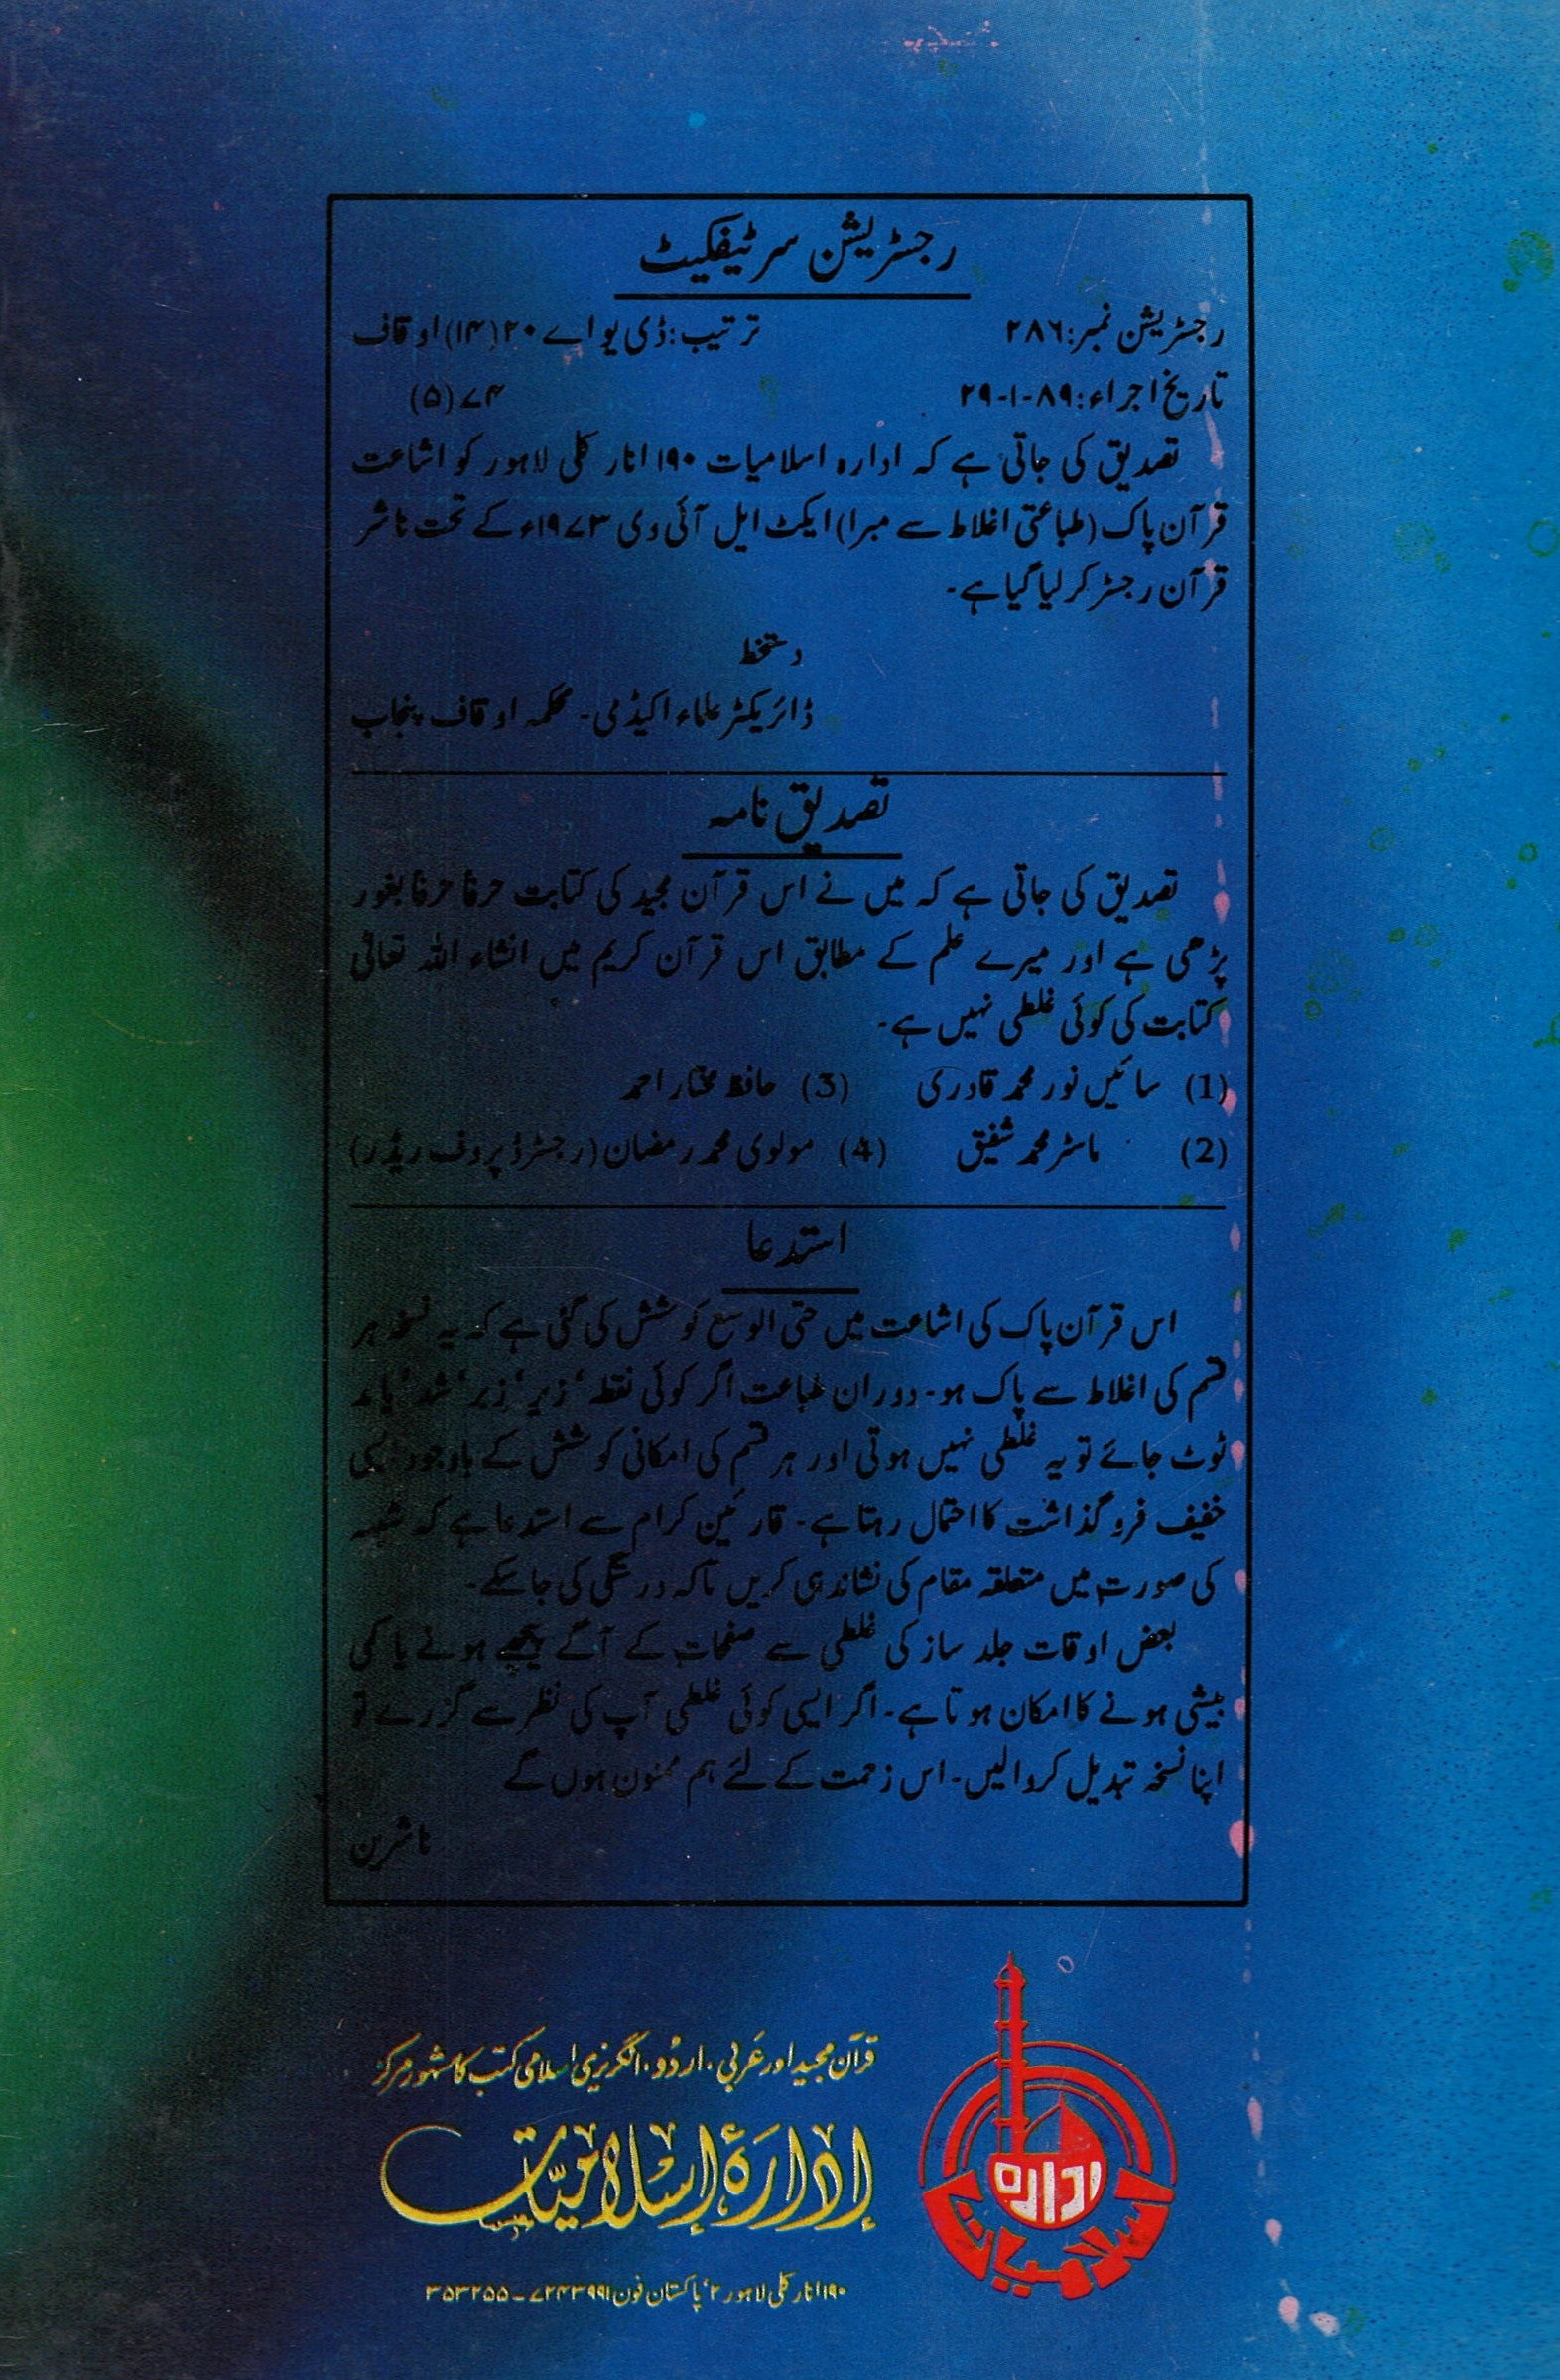 رجسٹریشن سرٹیفکیٹ
رجسٹریشن نمبر: ۲۸۶ ترتیب: ڈی یو اے ۲۰(۱۴) اوقاف
تاریخ اجراء: ۸۹-۱-۲۹ ۷۴(۵)
تصدیق کی جاتی ہے کہ ادارہ اسلامیات ۱۹۰ انار کلی لاہور کو اشاعت
قرآن پاک (طباعتی اغلاط سے مبرا) ایکٹ ایل آئی وی ۱۹۷۳ء کے تحت ناشر
قرآن رجسٹر کر لیا گیا ہے۔
دستخط
ڈائریکٹر علماء اکیڈمی۔ محکمہ اوقاف پنجاب
تصدیق نامہ
تصدیق کی جاتی ہے کہ میں نے اس قرآن مجید کی کتابت حرفاً حرفاً بغور
پڑھی ہے اور میرے علم کے مطابق اس قرآن کریم میں انشاء اللہ تعالٰی
کتابت کی کوئی غلطی نہیں ہے۔
(1) سائیں نور محمد قادری (3) حافظ مختار احمد
(2) ماسٹر محمد شفیق (4) مولوی محمد رمضان (رجسٹرڈ پروف ریڈر)
استدعا
اس قرآن پاک کی اشاعت میں حتی الوسع کوشش کی گئی ہے کہ یہ نسخہ ہر
قسم کی اغلاط سے پاک ہو۔ دوران طباعت اگر کوئی نقطہ‘ زیر‘ زبر‘ شد‘ یا مد
ٹوٹ جائے تو یہ غلطی نہیں ہوتی اور ہر قسم کی امکانی کوشش کے باوجود کسی
خفیف فروگذاشت کا احتمال رہتا ہے۔ قارئین کرام سے استدعا ہے کہ شبہ
کی صورت میں متعلقہ مقام کی نشاندہی کریں تاکہ درستگی کی جا سکے۔
بعض اوقات جلد ساز کی غلطی سے صفحات کے آگے پیچھے ہونے یا کمی
بیشی ہونے کا امکان ہوتا ہے۔ اگر ایسی کوئی غلطی آپ کی نظر سے گزرے تو
اپنا نسخہ تبدیل کروالیں۔ اس زحمت کے لئے ہم ممنون ہوں گے
ناشرین
قرآن مجید اور عربی، اردو، انگریزی اسلامی کتب کا مشہور مرکز
ادارہ
اسلامیات
إدارۂ إسلامیات
۱۹۰ انار کلی لاہور ۲‘ پاکستان فون ۷۲۴۳۹۹۱ – ۳۵۳۲۵۵